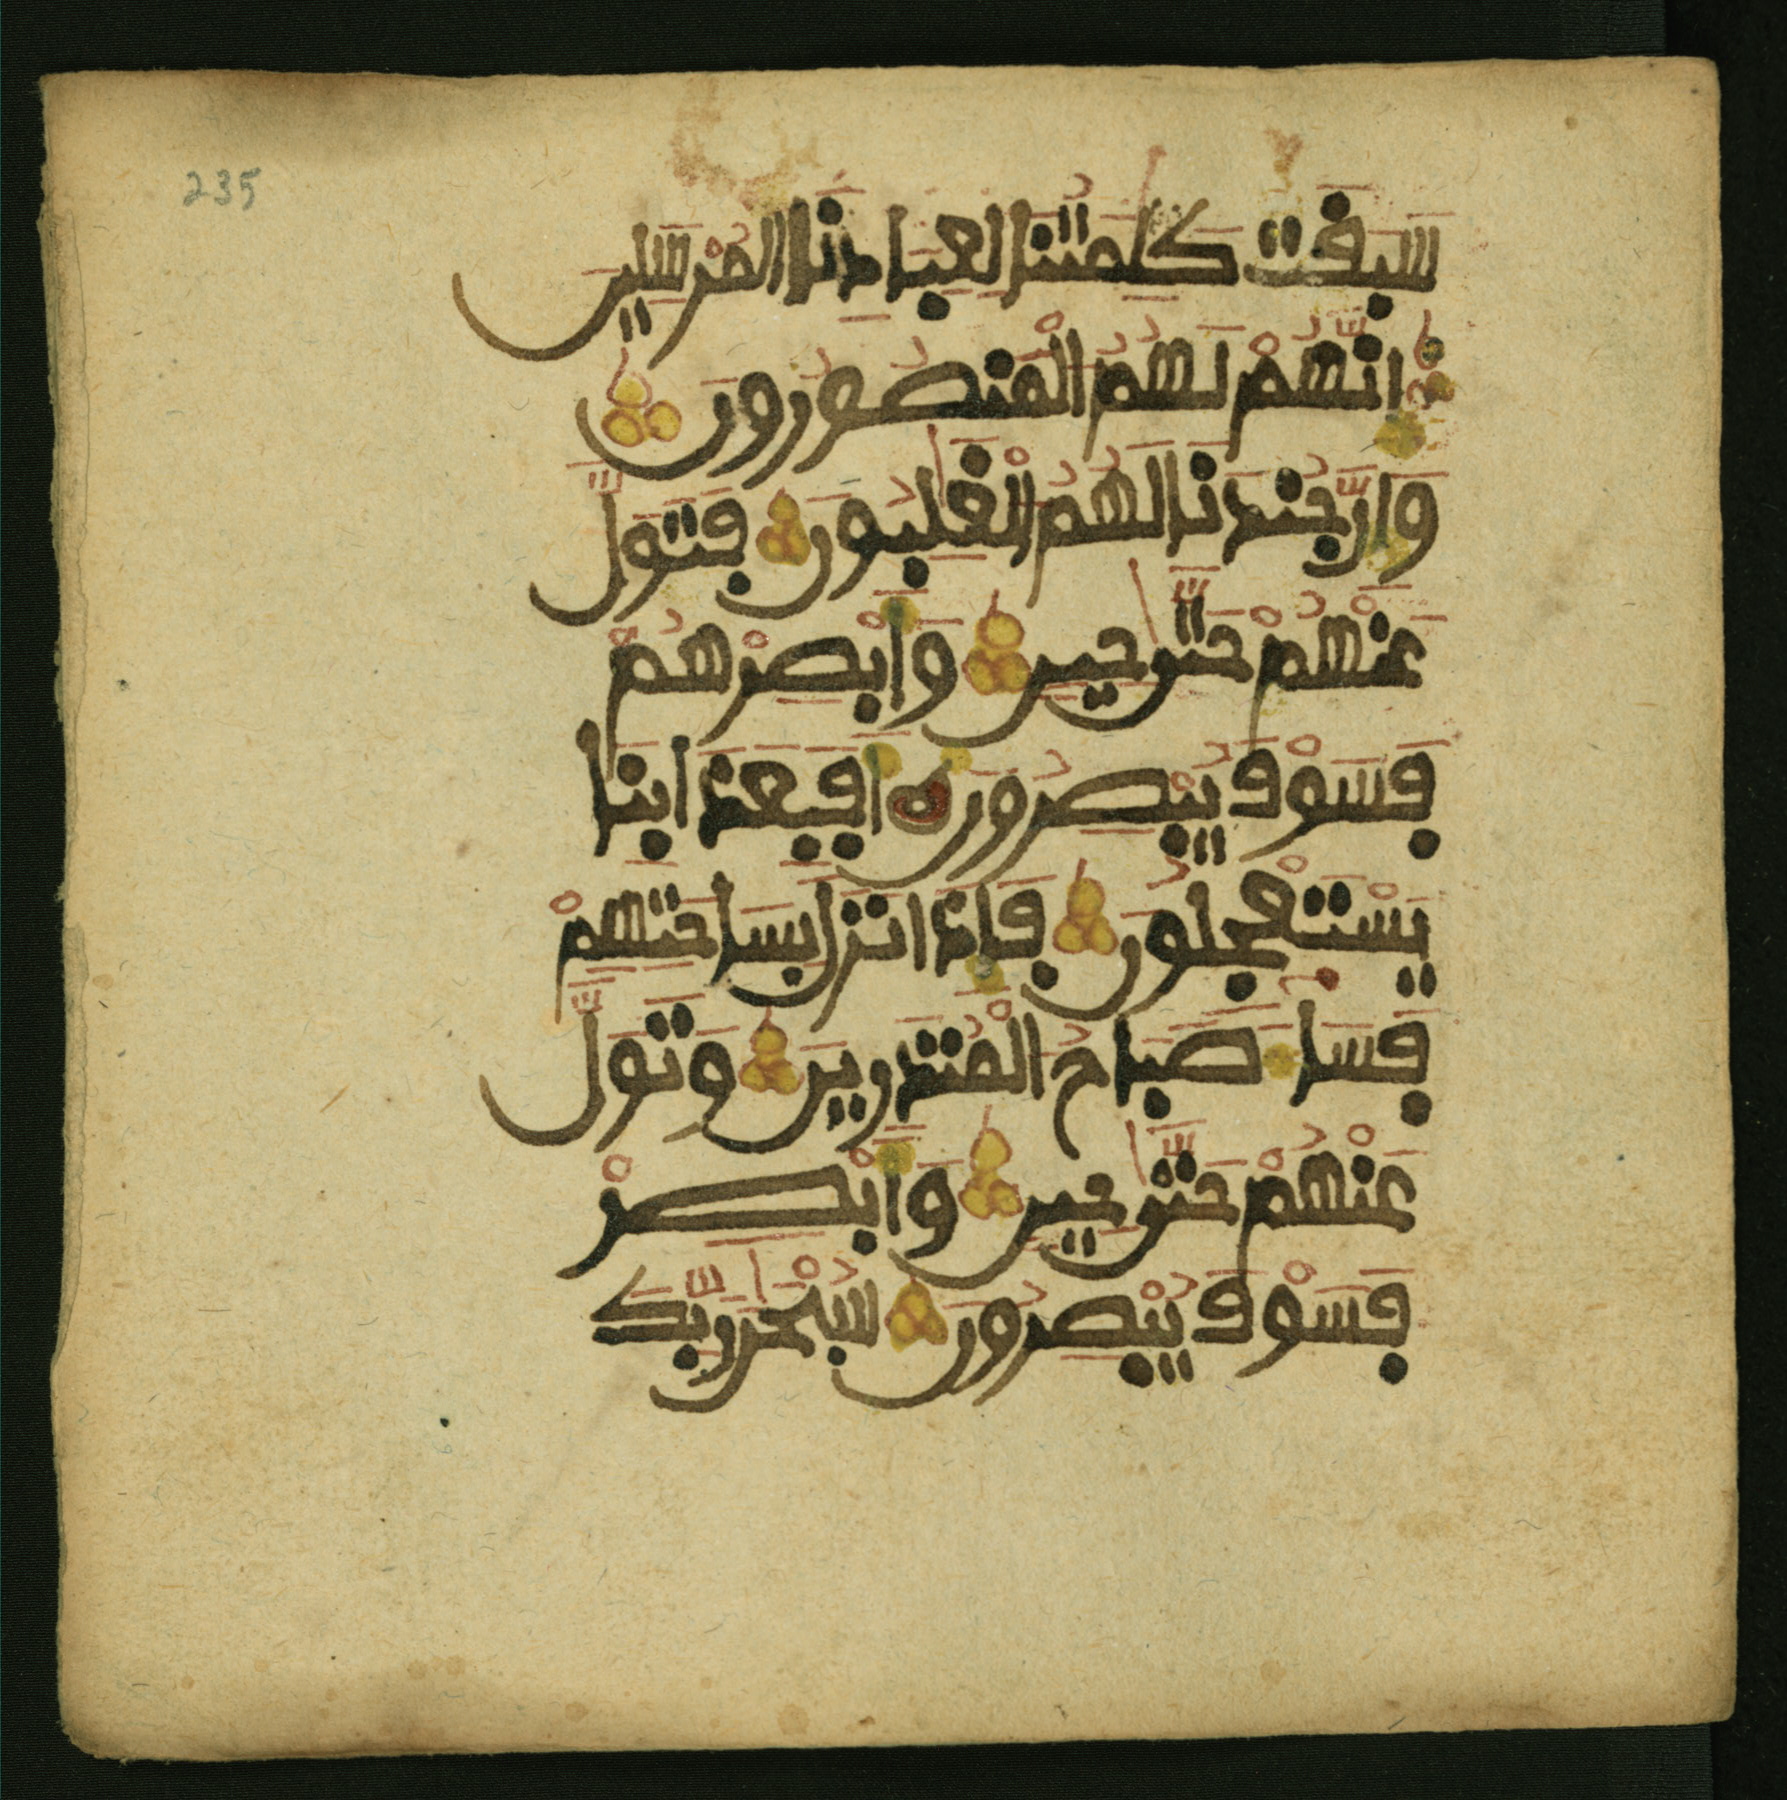 235
سَبَقَتْ كَلِمَتُنَا لِعِبَادِنَا الْمُرْسَلِينَ
إِنَّهُمْ لَهُمُ الْمَنصُورُونَ
وَإِنَّ جُندَنَا لَهُمُ الْغَٰلِبُونَ فَتَوَلَّ
عَنْهُمْ حَتَّىٰ حِينٍ وَأَبْصِرْهُمْ
فَسَوْفَ يُبْصِرُونَ أَفَبِعَذَابِنَا
يَسْتَعْجِلُونَ فَإِذَا نَزَلَ بِسَاحَتِهِمْ
فَسَاءَ صَبَاحُ الْمُنذَرِينَ وَتَوَلَّ
عَنْهُمْ حَتَّىٰ حِينٍ وَأَبْصِرْ
فَسَوْفَ يُبْصِرُونَ سُبْحَٰنَ رَبِّكَ